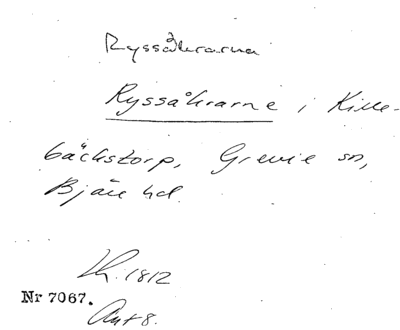 Ryssåkrarna
Ryssåkrarne i Kille-
bäckstorp, Grevie sn,
Bjäre hd.
Lh. 1812
Nr 7067.
Ant 8.